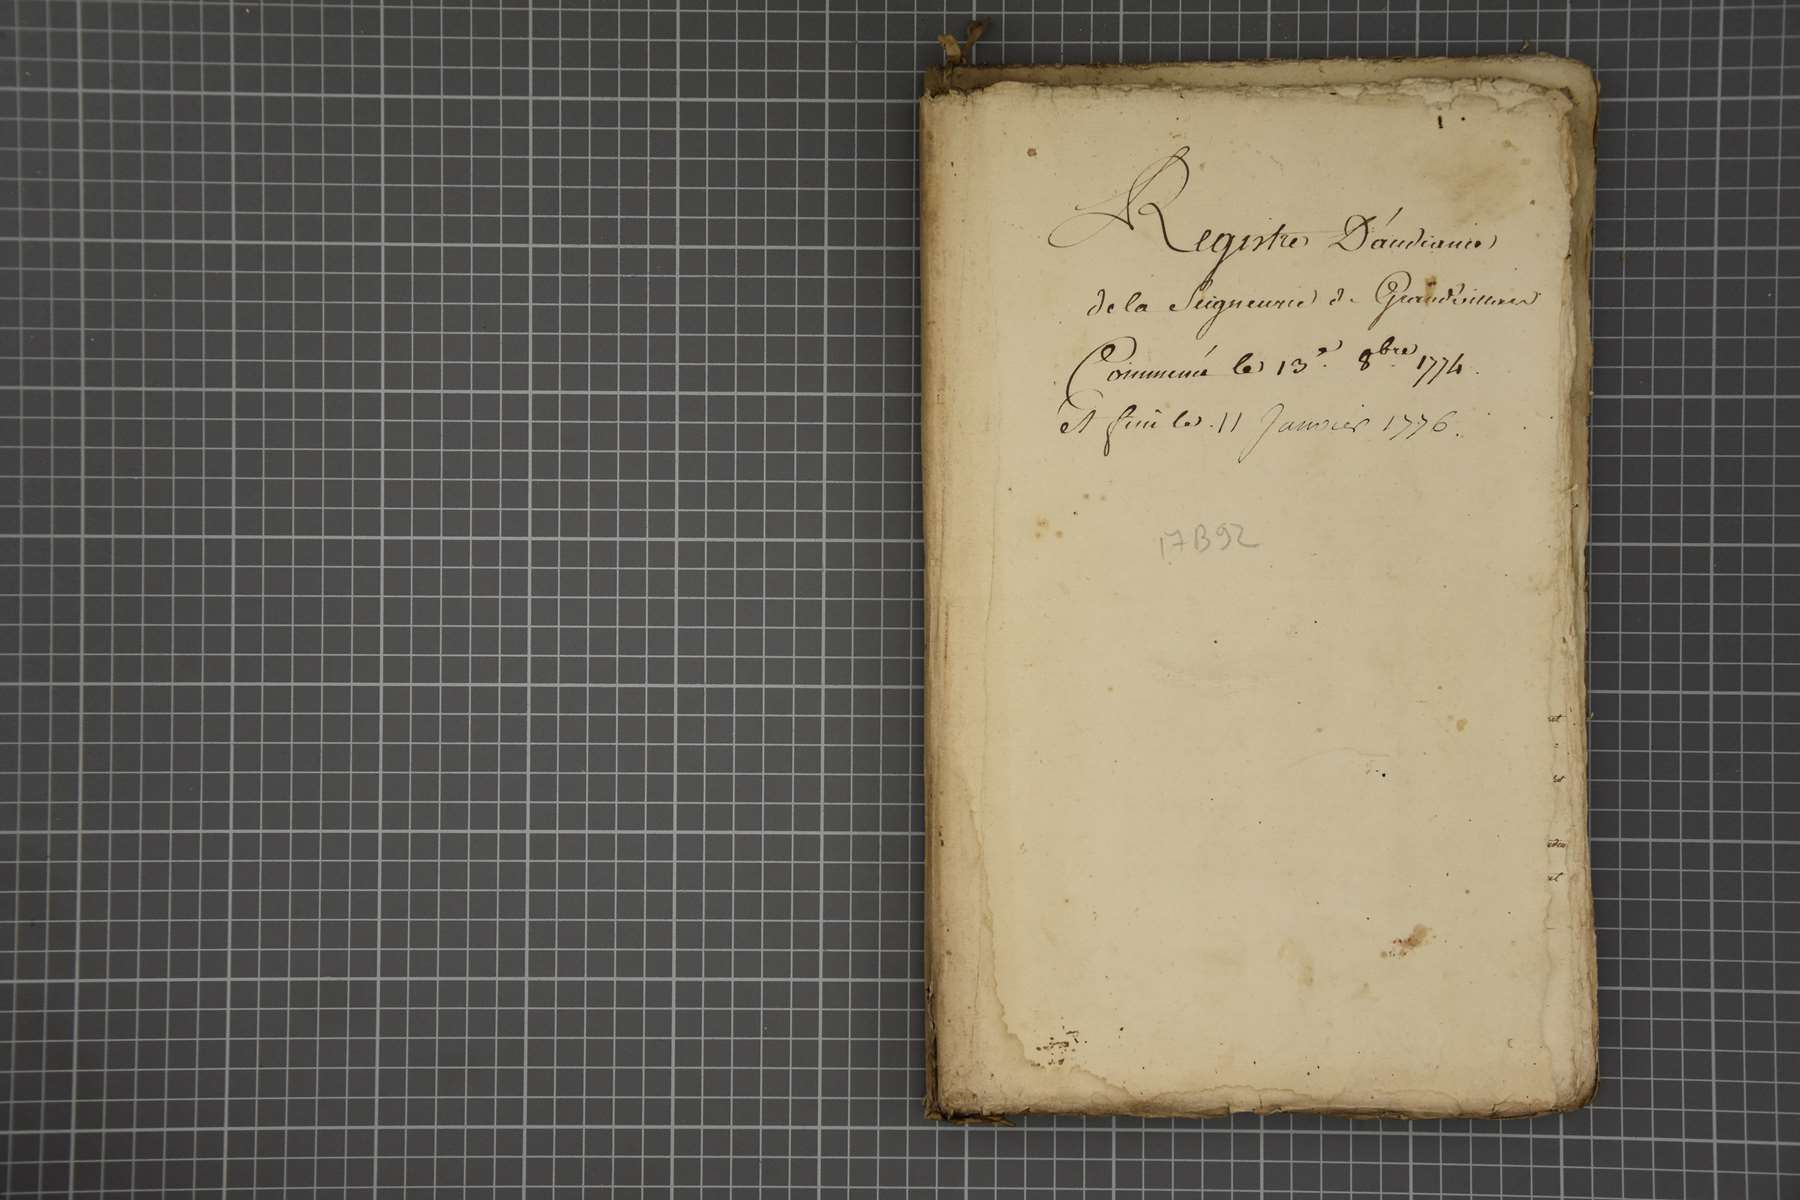 Registre D'audiance
de la Seigneurie de Grandvillars
Commencé le 13e. 8bre. 1774.
Et fini le 11 Janvier 1776.
17B92